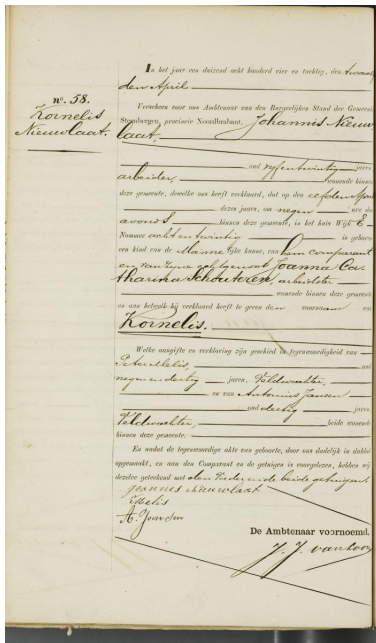 In het jaar een duizend acht honderd vier en tachtig, den
den April
n°. 58.
Kornelis
Nieuwlaat.
Verscheen voor ons Ambtenaar van den Burgerlijken Stand der Gemeente
Steenbergen, provincie Noordbrabant, Johannis Nieuw
laat,
oud vyfentwintig jaren,
arbeider, wonende binnen
deze gemeente, dewelke ons heeft verklaard, dat op den elfden April
dezes jaars, om negen ure des
avonds binnen deze gemeente, in het huis Wijk E
Nummer achtentwintig is geboren
een kind van de Mannelijke kunne, van hem comparant
en van zyne echtgenoot Joanna Ca=
tharina Schouteren, arbeidster
wonende binnen deze gemeente
en aan hetwelk hij verklaard heeft te geven den voornaam van
Kornelis.
Welke aangifte en verklaring zijn geschied in tegenwoordigheid van
Peter Melis, oud
negenendertig jaren, Veldwachter,
en van Antonius Jansen
oud dertig jaren,
Veldwachter, beide wonende
binnen deze gemeente.
En nadat de tegenwoordige akte van geboorte, door ons dadelijk in dubbel
opgemaakt, en aan den Comparant en de getuigen is voorgelezen, hebben wij
dezelve geteekend met den Vader en de beide getuigen
Joannes Nieuwlaat
PMelis
A. Jansen
De Ambtenaar voornoemd,
J. J. van Loon